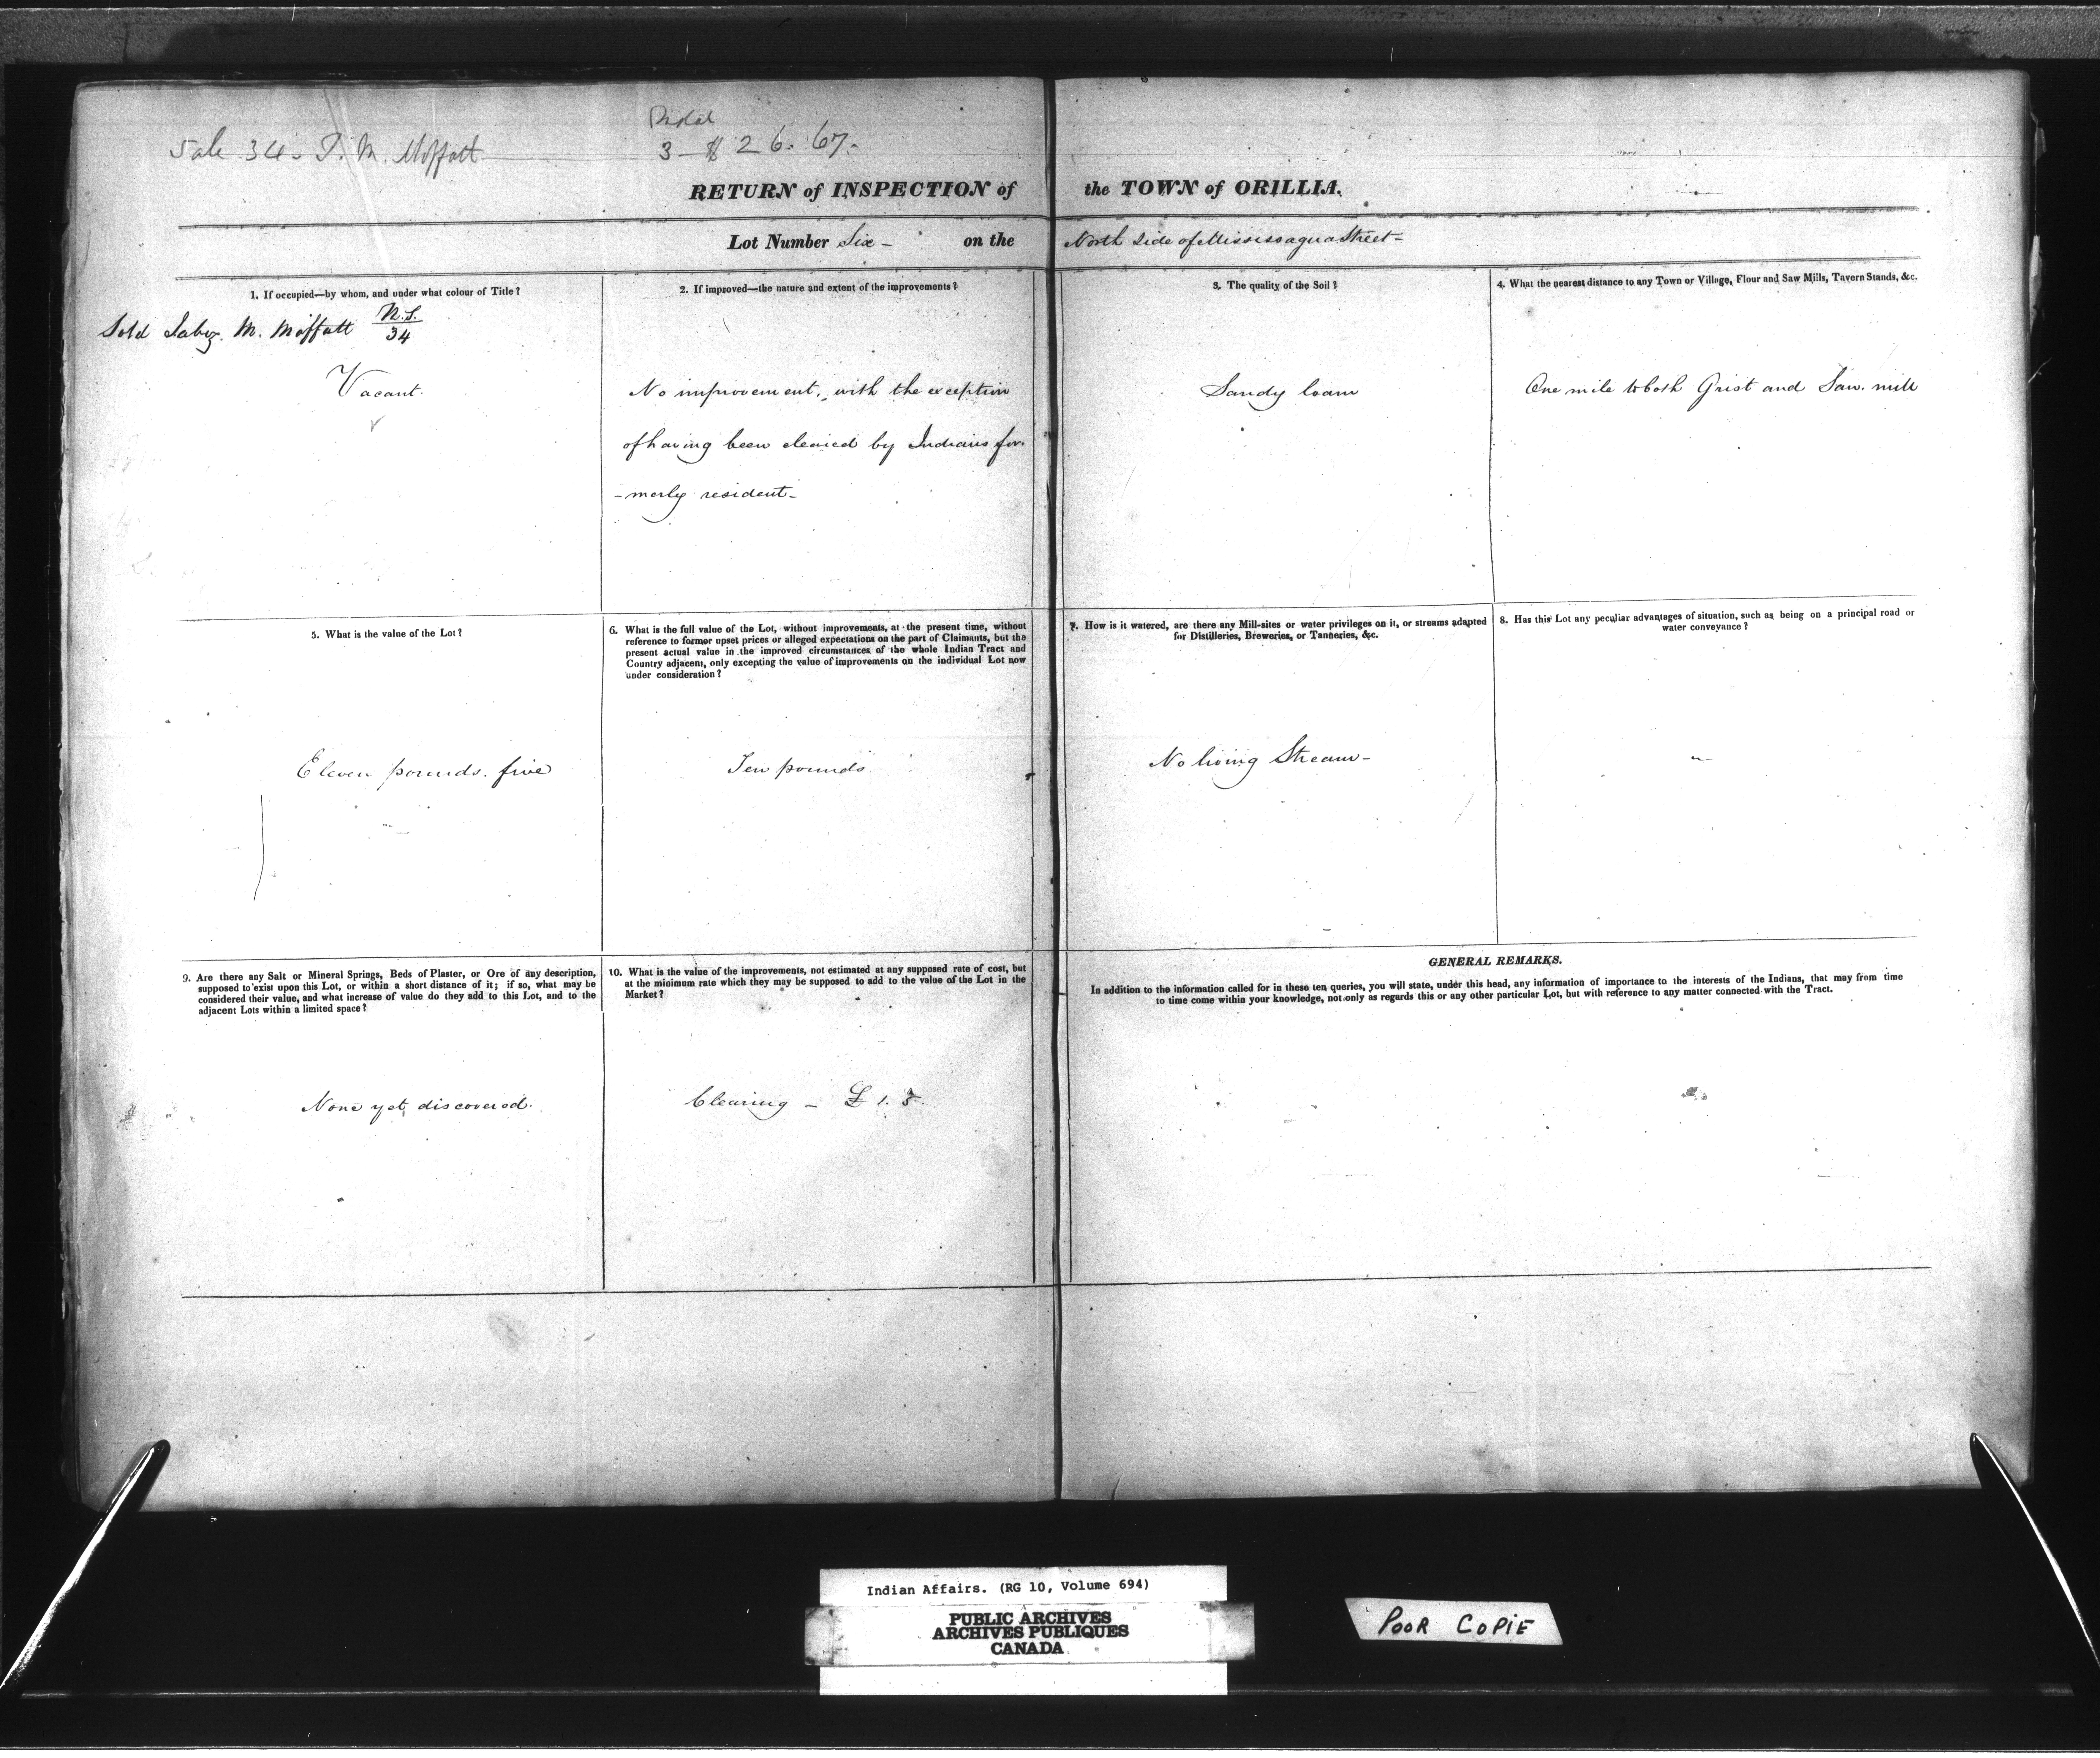 Sale 34 - I. M. Moffatt
3 - $ 26.67.
RETURN of INSPECTION of the TOWN of ORILLIA.
Lot Number Six - on the North Side of Mississagua Street -
1. If occupied—by whom, and under what colour of Title?
Sold M. Moffatt N.S.
34
Vacant.
2. If improved—the nature and extent of the improvements?
No improvement, with the exception
of having been cleared by Indians for-
-merly resident-
3. The quality of the Soil?
Sandy loam
4. What the nearest distance to any Town or Village, Flour and Saw Mills, Tavern Stands, &c.
One mile to both Grist and Saw. mill
5. What is the value of the Lot?
Eleven pounds. five
6. What is the full value of the Lot, without improvements, at the present time, without
reference to former upset prices or alleged expectations on the part of Claimants, but the
present actual value in the improved circumstances of the whole Indian Tract and
Country adjacent, only excepting the value of improvements on the individual Lot now
under consideration?
Ten pounds.
7. How is it watered, are there any Mill-sites or water privileges on it, or streams adapted
for Distilleries, Breweries, or Tanneries, &c.
No living Stream-
8. Has this Lot any peculiar advantages of situation, such as being on a principal road or
water conveyance?
9. Are there any Salt or Mineral Springs, Beds of Plaster, or Ore of any description,
supposed to exist upon this Lot, or within a short distance of it; if so, what may be
considered their value, and what increase of value do they add to this Lot, and to the
adjacent Lots within a limited space?
None yet discovered.
10. What is the value of the improvements, not estimated at any supposed rate of cost, but
at the minimum rate which they may be supposed to add to the value of the Lot in the
Market?
Clearing - £1.5.
GENERAL REMARKS.
In addition to the information called for in these ten queries, you will state, under this head, any information of importance to the interests of the Indians, that may from time
to time come within your knowledge, not only as regards this or any other particular Lot, but with reference to any matter connected with the Tract.
Indian Affairs. (RG 10, Volume 694)
PUBLIC ARCHIVES
ARCHIVES PUBLIQUES
CANADA
POOR COPIE